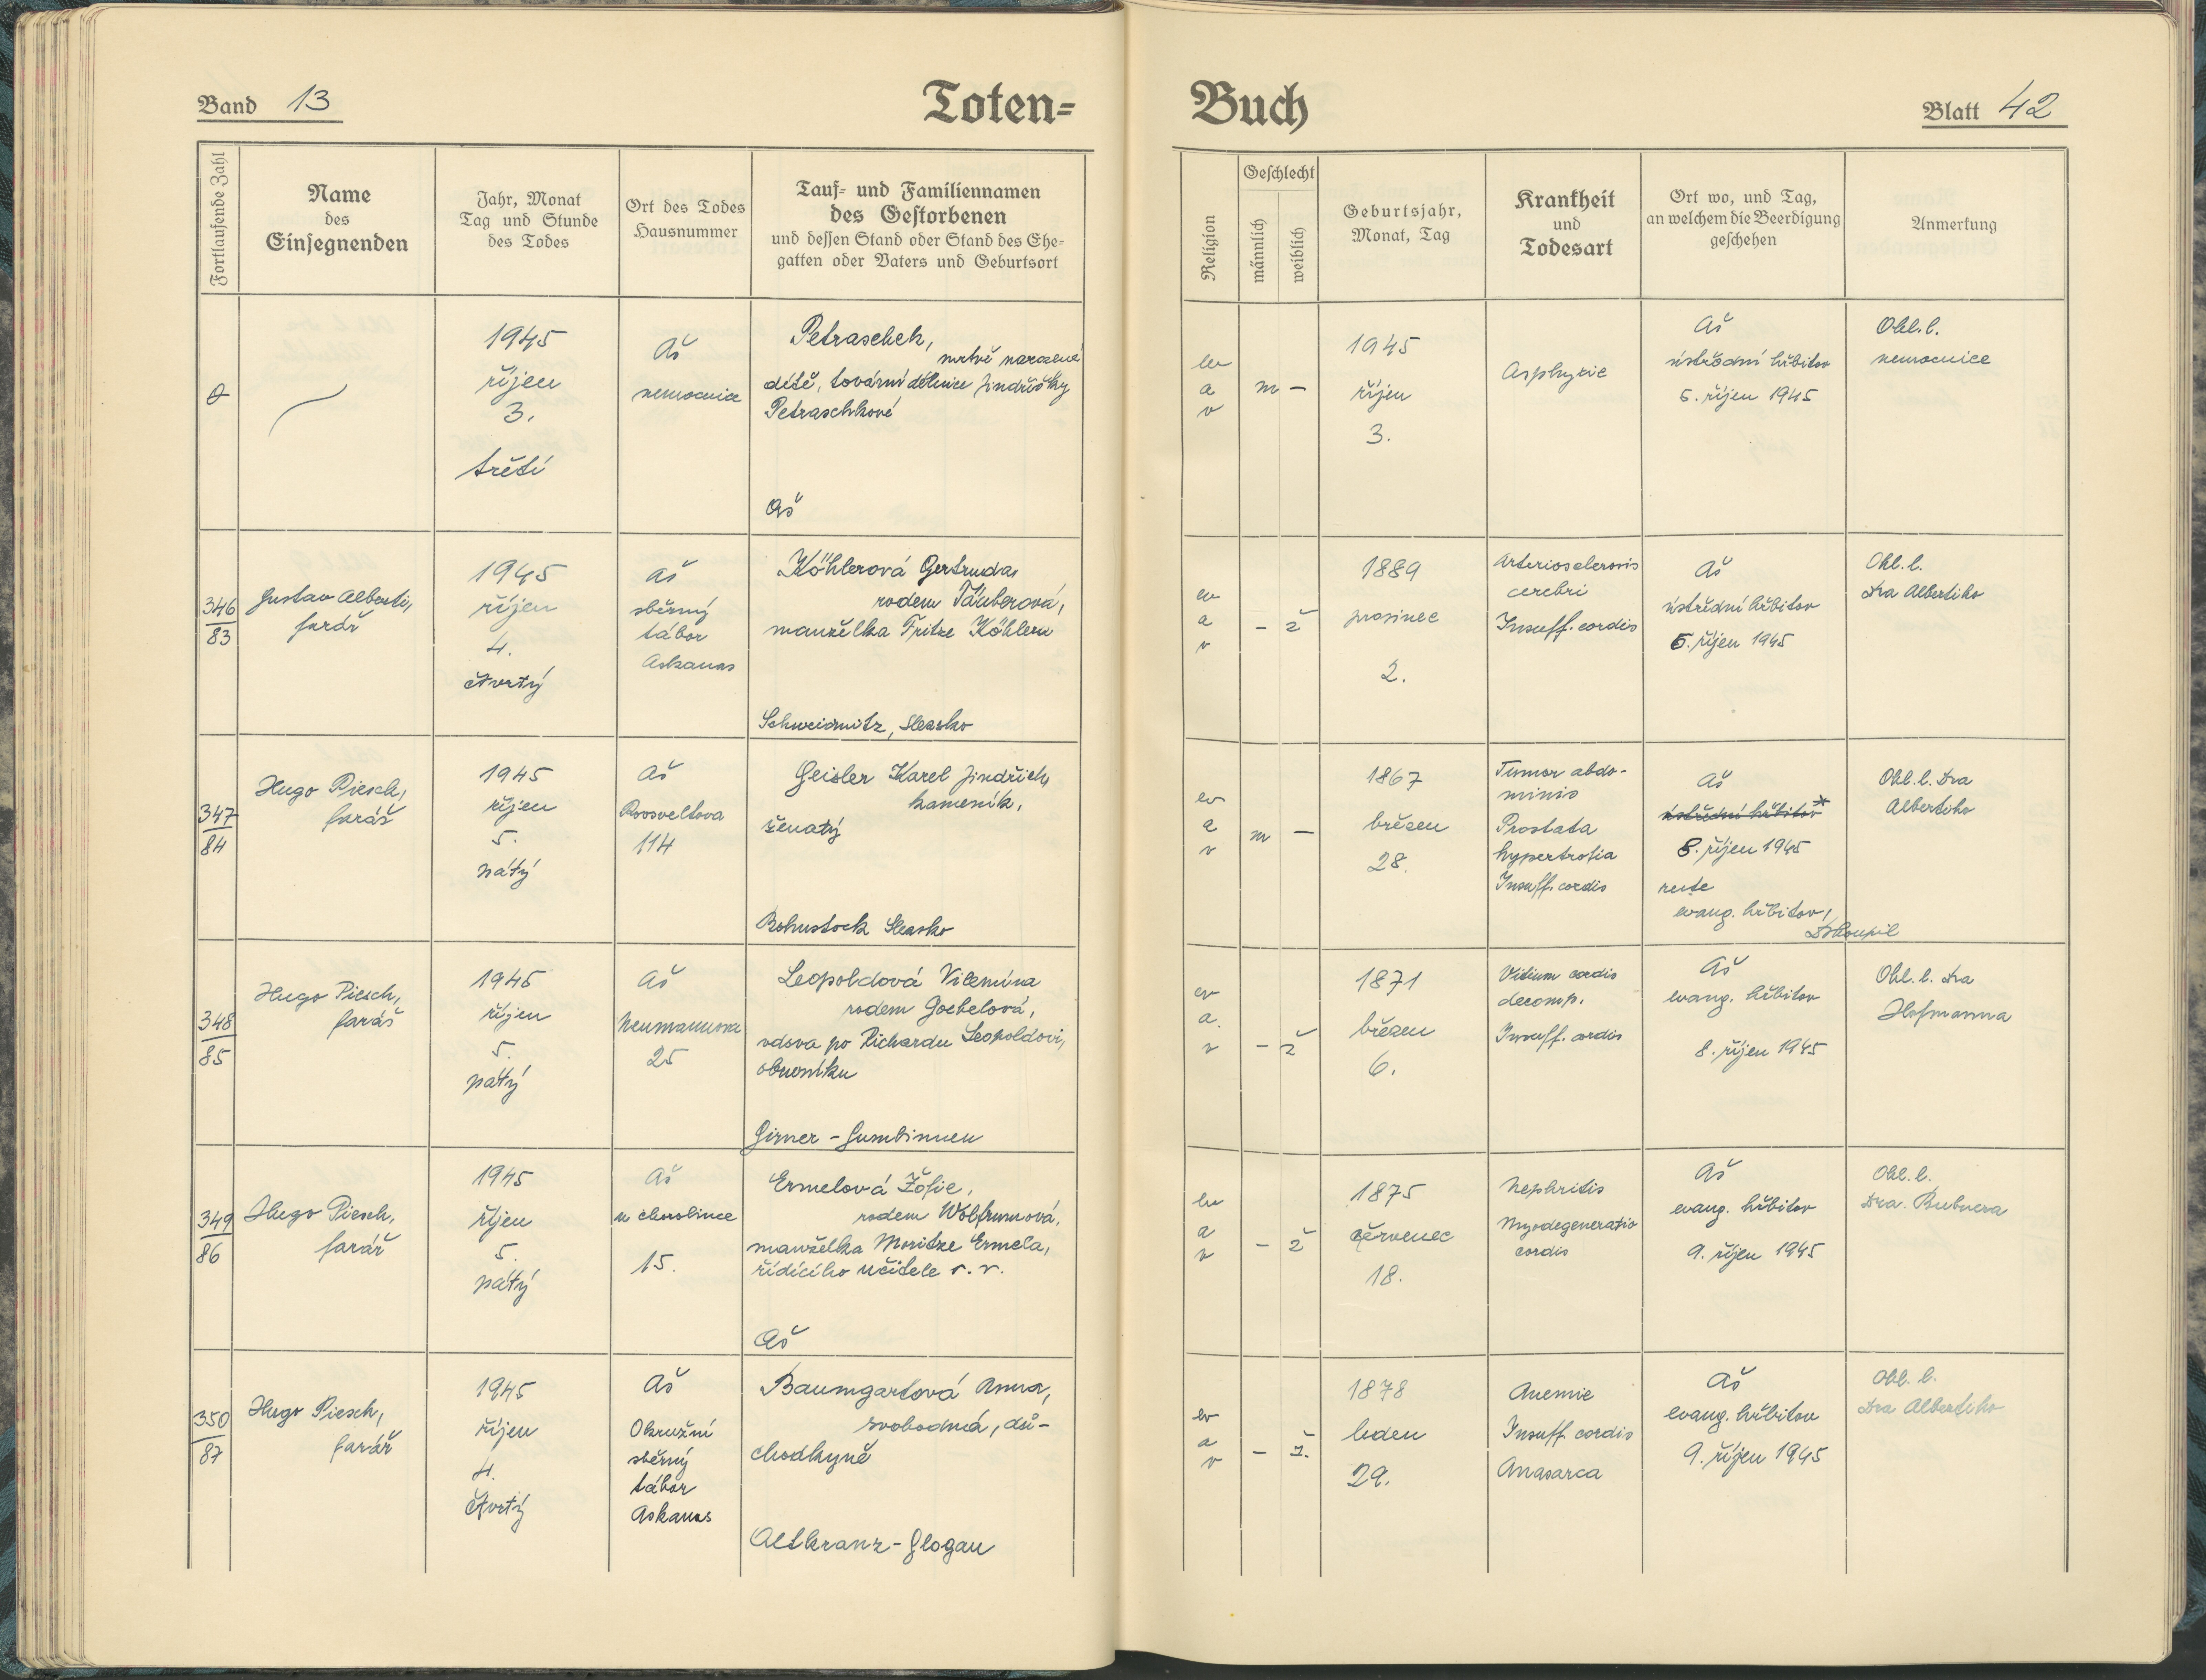 Band 13
Toten-
Buch
Blatt 42
Fortlaufende Zahl
Name
des
Einsegnenden
Jahr, Monat
Tag und Stunde
des Todes
Ort des Todes
Hausnummer
Tauf- und Familiennamen
des Gestorbenen
und dessen Stand oder Stand des Ehe-
gatten oder Vaters und Geburtsort
Religion
Geschlecht
männlich
weiblich
Geburtsjahr,
Monat, Tag
Krankheit
und
Todesart
Ort wo, und Tag,
an welchem die Beerdigung
geschehen
Anmerkung
1945
říjen
3.
třetí
Aš
nemocnice
Petraschek,
mrtvě narozené
dítě, tovární dělnice Jindřišky
Petraschkové
Aš
ev
a
v
m
–
1945
říjen
3.
Asphyxie
Aš
ústřední hřbitov
5. říjen 1945
Ohl. l.
nemocnice
346
83
Gustav Alberti,
farář
1945
říjen
4.
čtvrtý
Aš
sběrný
tábor
Askanas
Köhlerová Gertruda,
rodem Täuberová,
manželka Fritze Köhlera
Schweidnitz, Slezsko
ev
a
v
–
ž
1889
prosinec
2.
Arteriosclerosis
cerebri
Insuff. cordis
Aš
ústřední hřbitov
5. říjen 1945
Ohl. l.
Dra Albertiho
347
84
Hugo Piesch,
farář
1945
říjen
5.
pátý
Aš
Roosveltova
114
Geisler Karel Jindřich,
kameník,
ženatý
Bohustock Slezsko
ev
a
v
m
–
1867
březen
28.
Tumor abdo-
minis
Prostata
hypertrofia
Insuff. cordis
Aš
ústřední hřbitov *
8. říjen 1945
recte
evang. hřbitov,
Ohl. l. Dra
Albertiho
348
85
Hugo Piesch,
farář
1945
říjen
5.
pátý
Aš
Neumannova
25
Leopoldová Vilemína
rodem Goebelová,
vdova po Richardu Leopoldovi,
obuvníku
Girner - Gumbinnen
ev
a.
v
–
ž
1871
březen
6.
Vitium cordis
decomp.
Insuff. cordis
Aš
evang. hřbitov
8. říjen 1945
Ohl. l. Dra
Hofmanna
349
86
Hugo Piesch,
farář
1945
říjen
5.
pátý
Aš
u chudobince
15.
Ermelová Žofie,
rodem Wolframová,
manželka Moritze Ermela,
řídícího učitele v. v.
Aš
ev
a
v
–
ž
1875
červenec
18.
Nephritis
Myodegeneratio
cordis
Aš
evang. hřbitov
9. říjen 1945
Ohl. l.
Dra. Bubnera
350
87
Hugo Piesch,
farář
1945
říjen
4.
čtvrtý
Aš
Okružní
sběrný
tábor
Askanas
Baumgartová Anna,
svobodná, dů-
chodkyně
Altkranz - Glogau
ev
a
v
–
ž.
1878
leden
29.
Anemie
Insuff. cordis
Anasarca
Aš
evang. hřbitov
9. říjen 1945
Ohl. l.
Dra Albertiho